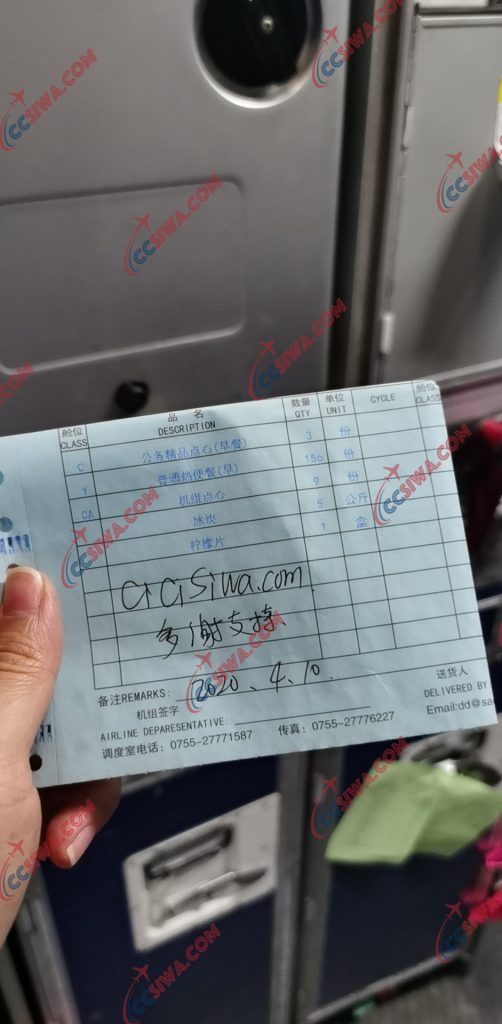 舱位 品 名 数量 单位 舱位
CLASS DESCRIPTION QTY UNIT CYCLE CLASS
C 公务精品点心(早餐) 3 份
Y 普通热便餐(早) 156 份
CA 机组点心 9 份
冰块 5 公斤
柠檬片 1 盒
CiCiSiwa.com
多谢支持
备注REMARKS: 2020.4.10. 送货人
机组签字 DELIVERED BY
AIRLINE DEPARESENTATIVE: Email:dd@sa
调度室电话: 0755-27771587 传真: 0755-27776227
CCSIWA.COM
CCSIWA.COM
CCSIWA.COM
CCSIWA.COM
CCSIWA.COM
CCSIWA.COM
CCSIWA.COM
CCSIWA.COM
CCSIWA.COM
CCSIWA.COM
CCSIWA.COM
CCSIWA.COM
CCSIWA.COM